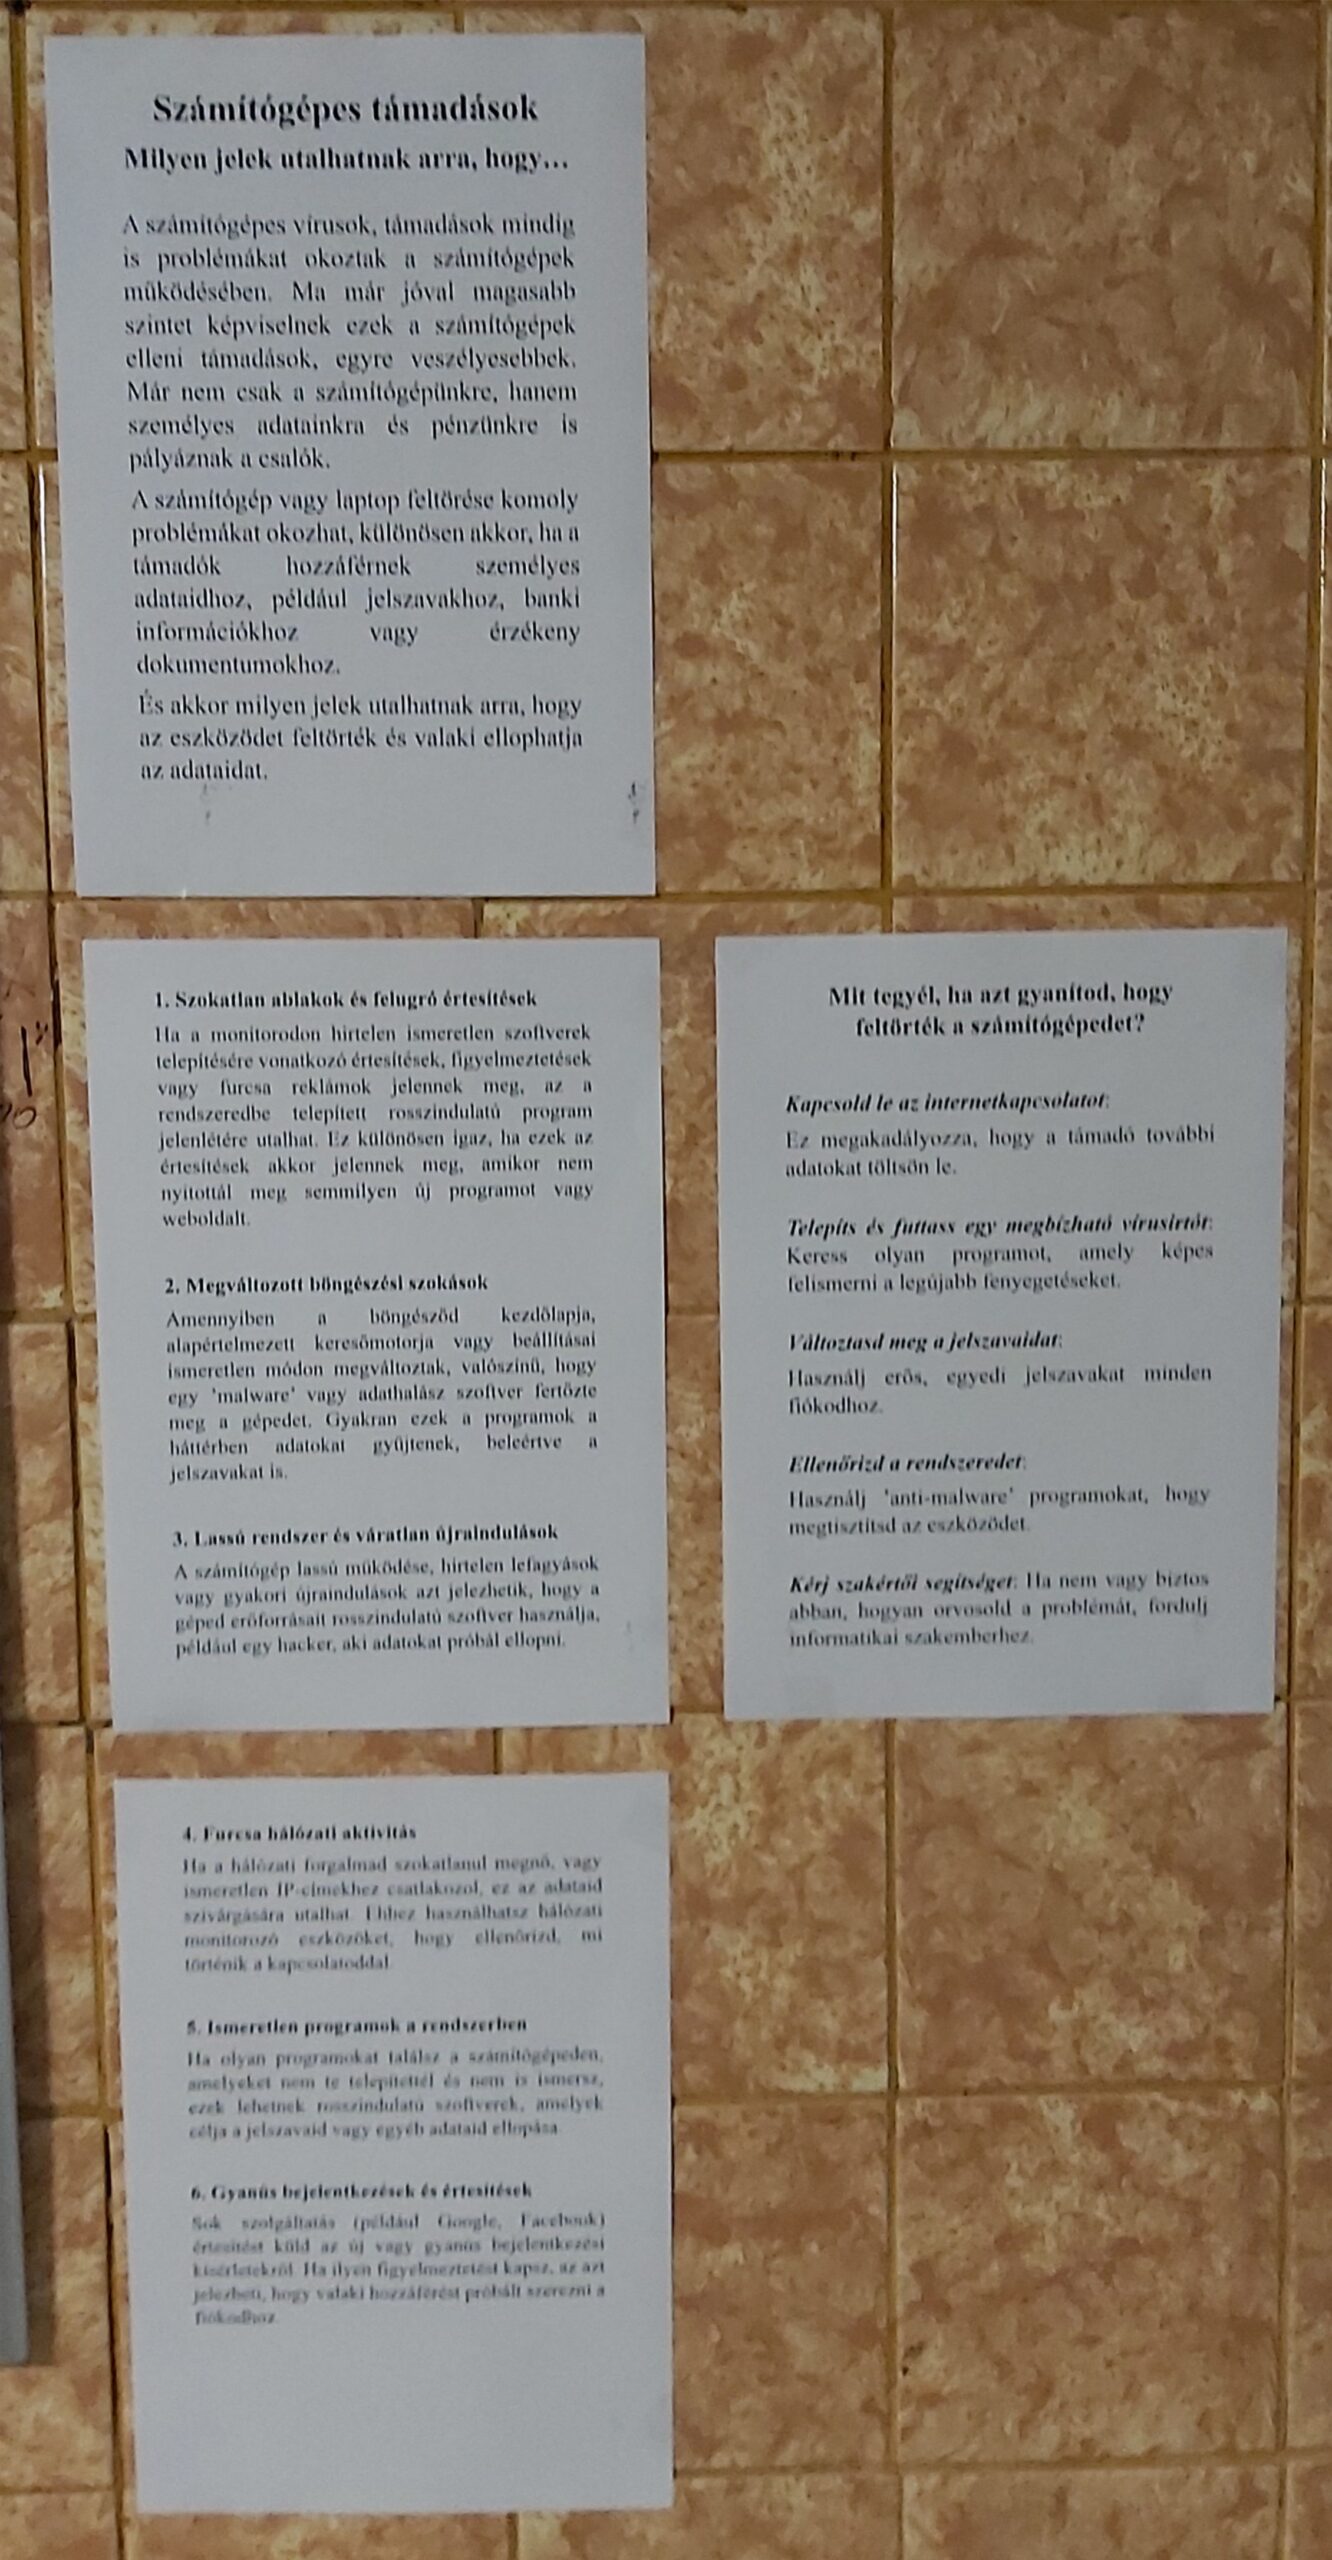 Számítógépes támadások
Milyen jelek utalhatnak arra, hogy…
A számítógépes vírusok, támadások mindig
is problémákat okoztak a számítógépek
működésében. Ma már jóval magasabb
szintet képviselnek ezek a számítógépek
elleni támadások, egyre veszélyesebbek.
Már nem csak a számítógépünkre, hanem
személyes adatainkra és pénzünkre is
pályáznak a csalók.
A számítógép vagy laptop feltörése komoly
problémákat okozhat, különösen akkor, ha a
támadók hozzáférnek személyes
adataidhoz, például jelszavakhoz, banki
információkhoz vagy érzékeny
dokumentumokhoz.
És akkor milyen jelek utalhatnak arra, hogy
az eszközödet feltörték és valaki ellophatja
az adataidat.
1. Szokatlan ablakok és felugró értesítések
Ha a monitorodon hirtelen ismeretlen szoftverek
telepítésére vonatkozó értesítések, figyelmeztetések
vagy furcsa reklámok jelennek meg, az a
rendszeredbe telepített rosszindulatú program
jelenlétére utalhat. Ez különösen igaz, ha ezek az
értesítések akkor jelennek meg, amikor nem
nyitottál meg semmilyen új programot vagy
weboldalt.
2. Megváltozott böngészési szokások
Amennyiben a böngésződ kezdőlapja,
alapértelmezett keresőmotorja vagy beállításai
ismeretlen módon megváltoztak, valószínű, hogy
egy 'malware' vagy adathalász szoftver fertőzte
meg a gépedet. Gyakran ezek a programok a
háttérben adatokat gyűjtenek, beleértve a
jelszavakat is.
3. Lassú rendszer és váratlan újraindulások
A számítógép lassú működése, hirtelen lefagyások
vagy gyakori újraindulások azt jelezhetik, hogy a
géped erőforrásait rosszindulatú szoftver használja,
például egy hacker, aki adatokat próbál ellopni.
Mit tegyél, ha azt gyanítod, hogy
feltörték a számítógépedet?
Kapcsold le az internetkapcsolatot:
Ez megakadályozza, hogy a támadó további
adatokat töltsön le.
Telepíts és futtass egy megbízható vírusirtót:
Keress olyan programot, amely képes
felismerni a legújabb fenyegetéseket.
Változtasd meg a jelszavaidat:
Használj erős, egyedi jelszavakat minden
fiókodhoz.
Ellenőrizd a rendszeredet:
Használj 'anti-malware' programokat, hogy
megtisztítsd az eszközödet.
Kérj szakértői segítséget: Ha nem vagy biztos
abban, hogyan orvosold a problémát, fordulj
informatikai szakemberhez.
4. Furcsa hálózati aktivitás
Ha a hálózati forgalmad szokatlanul megnő, vagy
ismeretlen IP-címekhez csatlakozol, ez az adataid
szivárgására utalhat. Ehhez használhatsz hálózati
monitorozó eszközöket, hogy ellenőrizd, mi
történik a kapcsolatoddal.
5. Ismeretlen programok a rendszerben
Ha olyan programokat találsz a számítógépeden,
amelyeket nem te telepítettél és nem is ismersz,
ezek lehetnek rosszindulatú szoftverek, amelyek
célja a jelszavaid vagy egyéb adataid ellopása.
6. Gyanús bejelentkezések és értesítések
Sok szolgáltatás (például Google, Facebook)
értesítést küld az új vagy gyanús bejelentkezési
kísérletekről. Ha ilyen figyelmeztetést kapsz, az azt
jelezheti, hogy valaki hozzáférést próbált szerezni a
fiókodhoz.